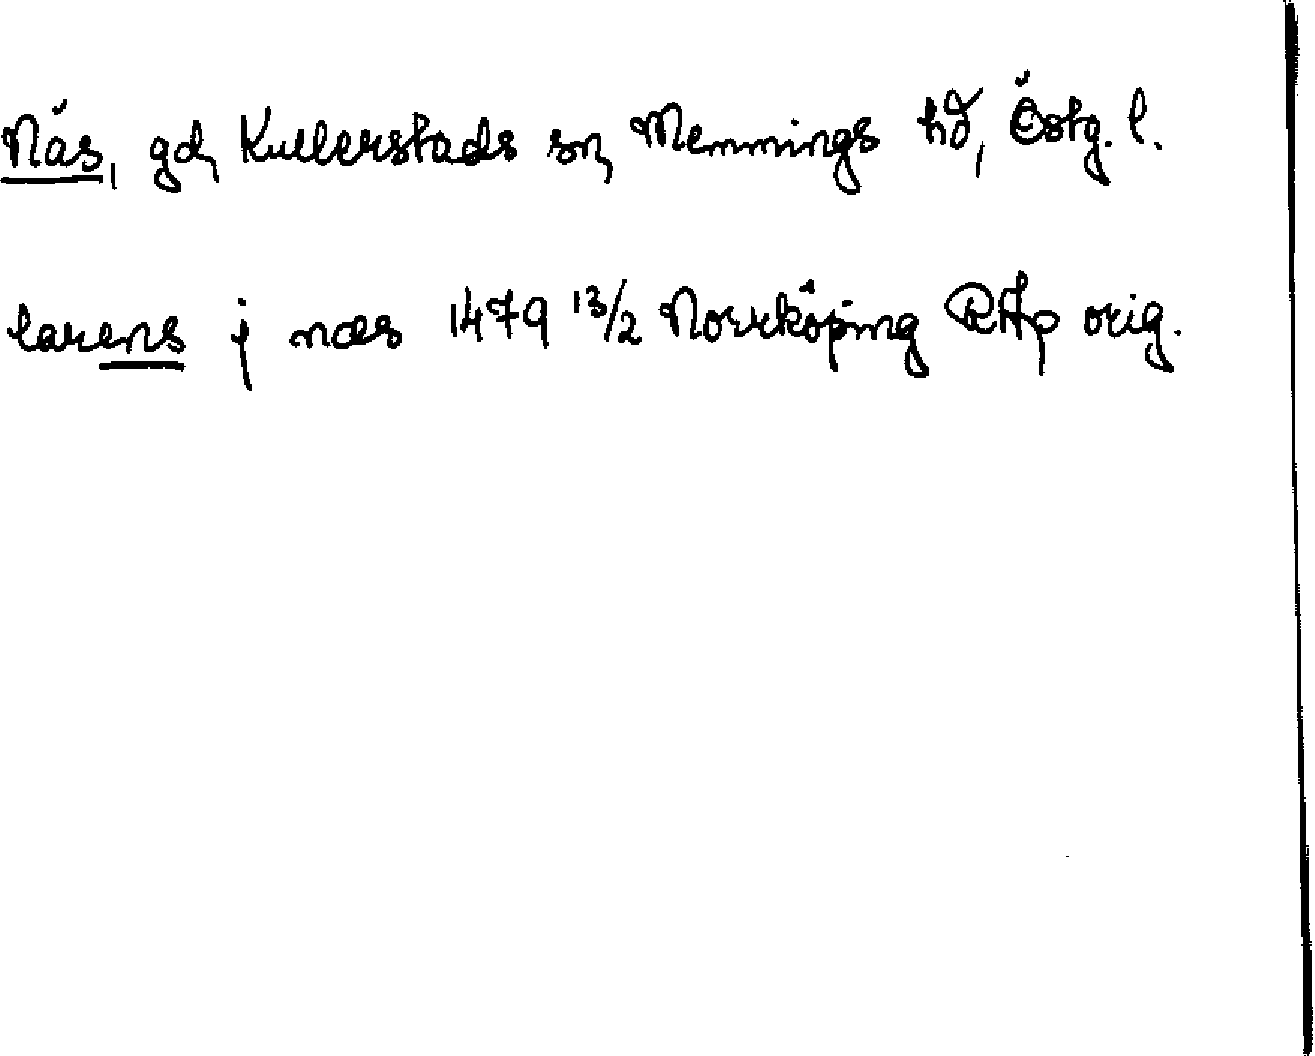 Näs, gd, Kullerstads sn, Memmings hd, Östg. l.
larens j næs 1479 13/2 Norrköping RAp orig.